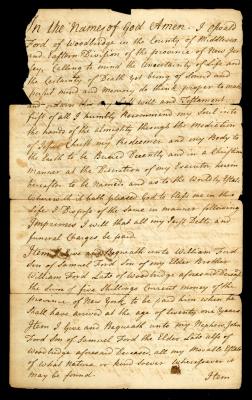 In the Name of God Amen. I
Ford of Woodbridge in the County of Middlesex
and Eastern Division of the province of New Jer
sey, Calling to mind the Uncertainty of Life and
the Certainty of Death yet being of Sound and
perfect mind and memory do think proper to make
and this Last will and Testament
first of all I humbly Recommend my Soul into
the hands of the Almighty through the mediation
of Jesus Christ my Redeemer and my Body to
the Earth to be Buried Decently and in a Christian
manner at the Discretion of my Executor herein
hereafter to be Named and as to the Worldly Estate
Wherewith it hath pleased God to bless me in this
Life I Dispose of the Same in manner following
Imprimis I will that all my Just Debts and
funeral Charges be paid
Item I Give and Bequeath unto William Ford
Son of Samuel Ford Son of my Elder Brother
William Ford Late of Woodbridge aforesaid Deceased
the Sum of five Shillings Current money of the
province of New York to be paid him when he
Shall have arrived at the age of twenty one Years
Item I Give and Bequeath unto my Nephew John
Ford Son of Samuel Ford the Elder Late also of
Woodbridge aforesaid Deceased, all my Movable Estate
of what Nature or kind soever Wheresoever it
may be found.
Item